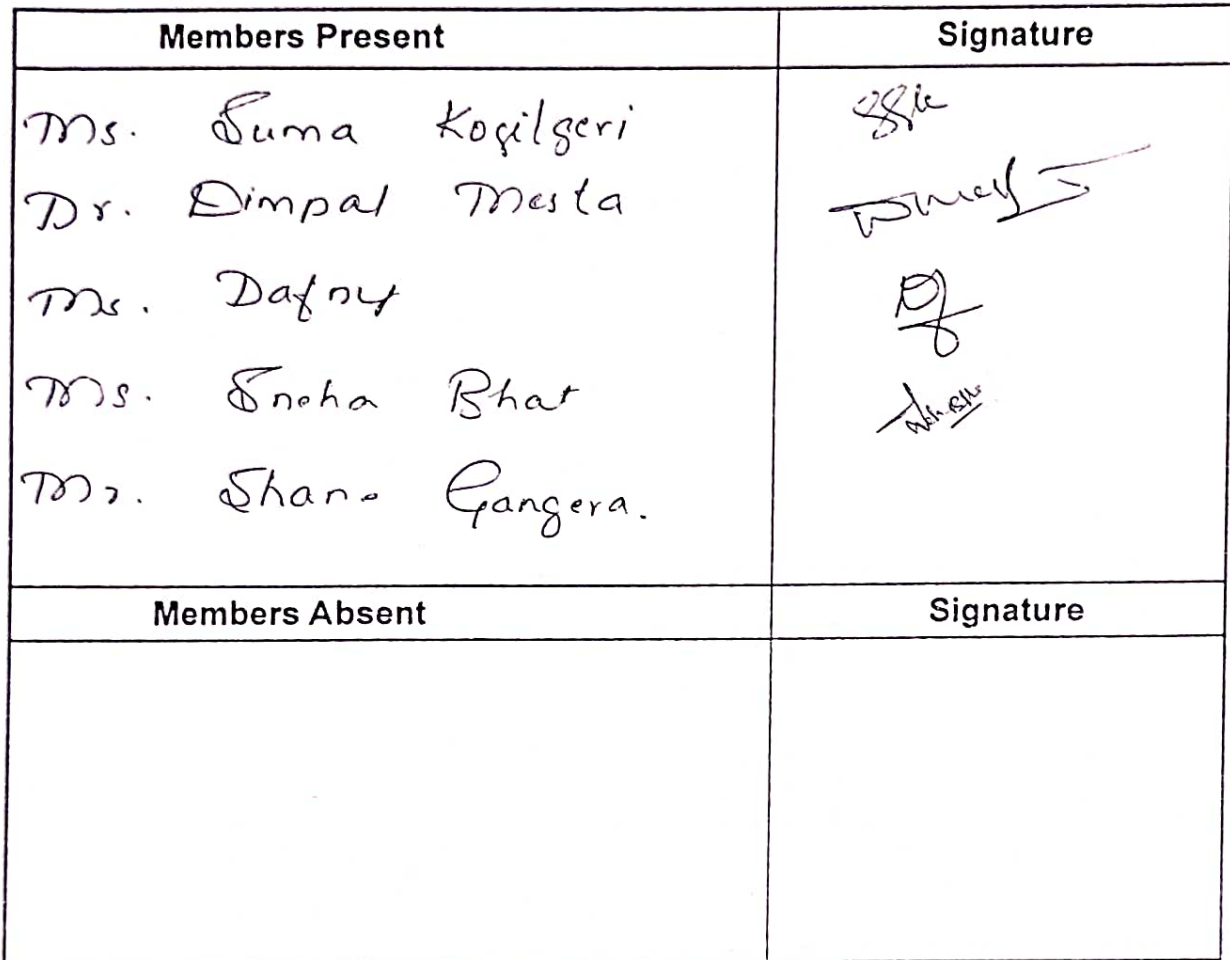 Members Present Signature
Ms. Suma Kogilgeri
Dr. Dimpal Mesta
Ms. Dafny
Ms. Sneha Bhat
Mr. Shane Gangera.
Members Absent Signature